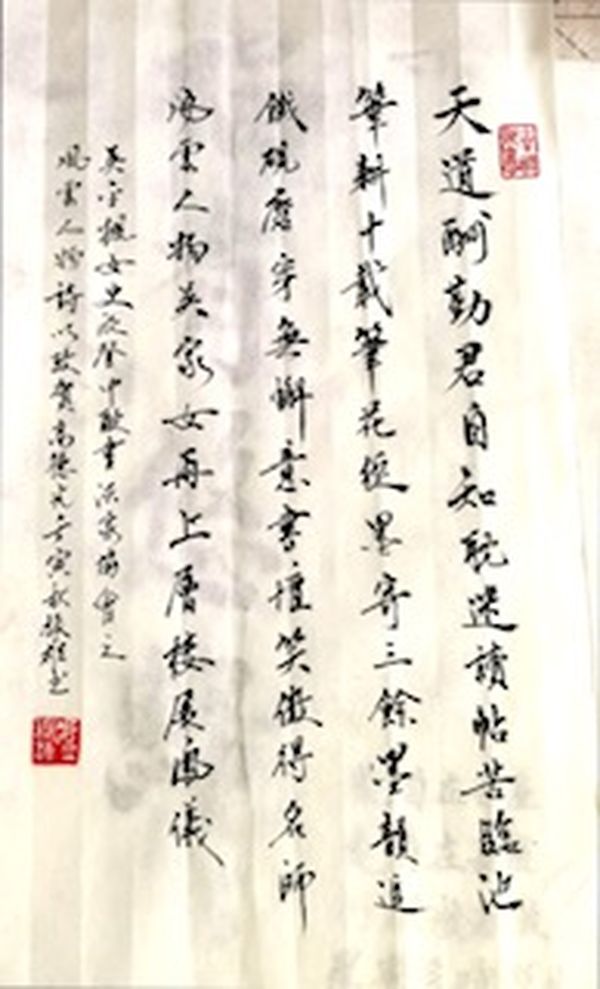 天道酬勤君自知耽迷讀帖苦臨池
筆耕十載筆花綻墨寄三餘墨韻追
鐵硯磨穿無懈意書壇笑傲得名師
風雲人物吳家女再上層楼展鳳儀
吳 女史 中 書法家協會之
風雲人物詩以致賀高德元壬寅秋 書